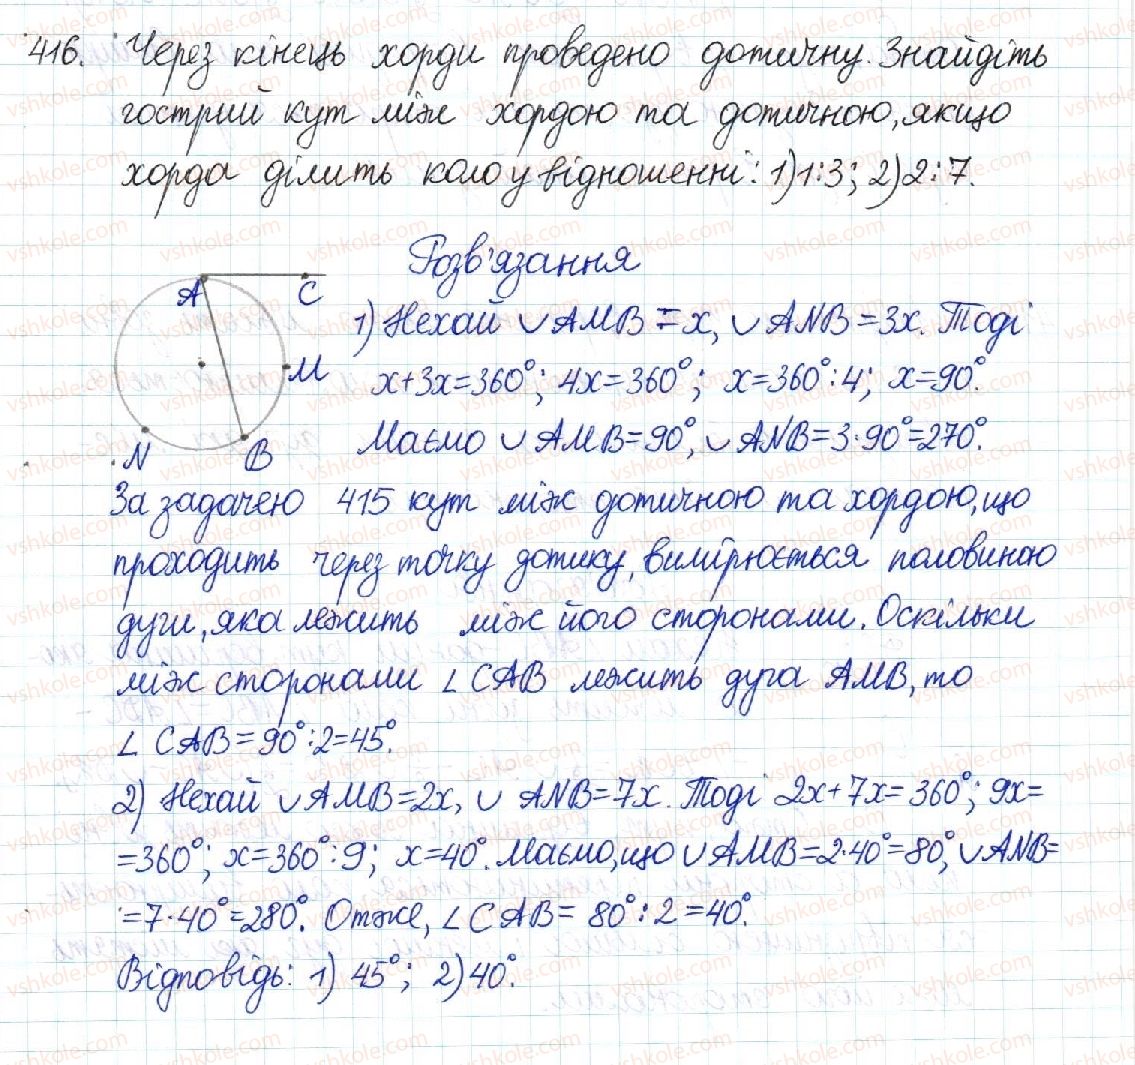 416. Через кінець хорди проведено дотичну. Знайдіть
гострий кут між хордою та дотичною, якщо
хорда ділить коло у відношенні: 1) 1:3; 2) 2:7.
Розв'язання
A
C
M
N
B
1) Нехай ∪AMB = x, ∪ANB = 3x. Тоді
x+3x=360°; 4x=360°; x=360°:4; x=90°.
Маємо ∪AMB=90°, ∪ANB=3·90°=270°.
За задачею 415 кут між дотичною та хордою, що
проходить через точку дотику, вимірюється половиною
дуги, яка лежить між його сторонами. Оскільки
між сторонами ∠CAB лежить дуга AMB, то
∠CAB=90°:2=45°.
2) Нехай ∪AMB=2x, ∪ANB=7x. Тоді 2x+7x=360°; 9x=
=360°; x=360°:9; x=40°. Маємо, що ∪AMB=2·40°=80°, ∪ANB=
=7·40°=280°. Отже, ∠CAB= 80°:2=40°.
Відповідь: 1) 45°; 2) 40°.